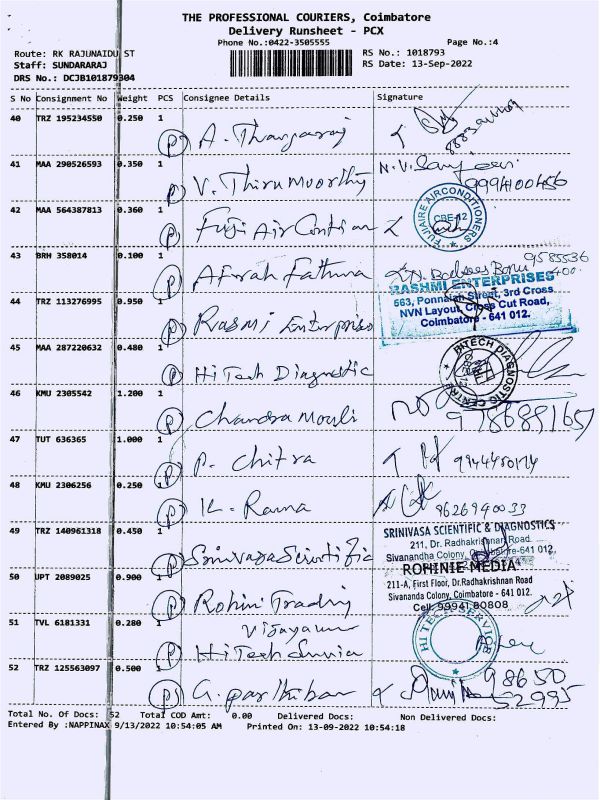 THE PROFESSIONAL COURIERS, Coimbatore
Delivery Runsheet - PCX
Phone No.:0422-3505555 Page No.:4
Route: RK RAJUNAIDU ST RS No.: 1018793
Staff: SUNDARARAJ RS Date: 13-Sep-2022
DRS No.: DCJB101879304
S No Consignment No Weight PCS Consignee Details Signature
40 TRZ 195234550 0.250 1
P A. Thangaraj
41 MAA 290526593 0.350 1
P V. Thirumoorthy N.V. 9994100456
42 MAA 564387813 0.360 1
P Fuji Air Condian
FUJIAIRE AIRCONDITIONERS
CBE-12
43 BRH 358014 0.100 1
P Afrah Fathima 9585536
RASHMI ENTERPRISES
563, Ponnaiah Street, 3rd Cross
NVN Layout, Cross Cut Road,
Coimbatore - 641 012.
44 TRZ 113276995 0.950 1
P Rasmi Enterprises
45 MAA 287220632 0.480 1
P HiTech Diagnostic
HITECH DIAGNOSTIC CENTRE
46 KMU 2305542 1.200 1
P Chandra Mouli
47 TUT 636365 1.000 1
P. Chitra
48 KMU 2306256 0.250 1
P K. Rama 9626940033
49 TRZ 140961318 0.450 1
P Srinivasa Scientific
SRINIVASA SCIENTIFIC & DIAGNOSTICS
211, Dr. Radhakrishnan Road
Sivanandha Colony, Coimbatore-641 012.
50 UPT 2089025 0.900 1
P Rohini Trading
ROHINIE MEDIA
211-A, First Floor, Dr.Radhakrishnan Road
Sivananda Colony, Coimbatore - 641 012.
Cell: 99941 80808
51 TVL 6181331 0.280 1
P HiTech Service
HI TECH SERVICE
52 TRZ 125563097 0.500 1
P G. Parthiban 98650
52995
Total No. Of Docs: 52 Total COD Amt: 0.00 Delivered Docs: Non Delivered Docs:
Entered By :NAPPINAX 9/13/2022 10:54:05 AM Printed On: 13-09-2022 10:54:18